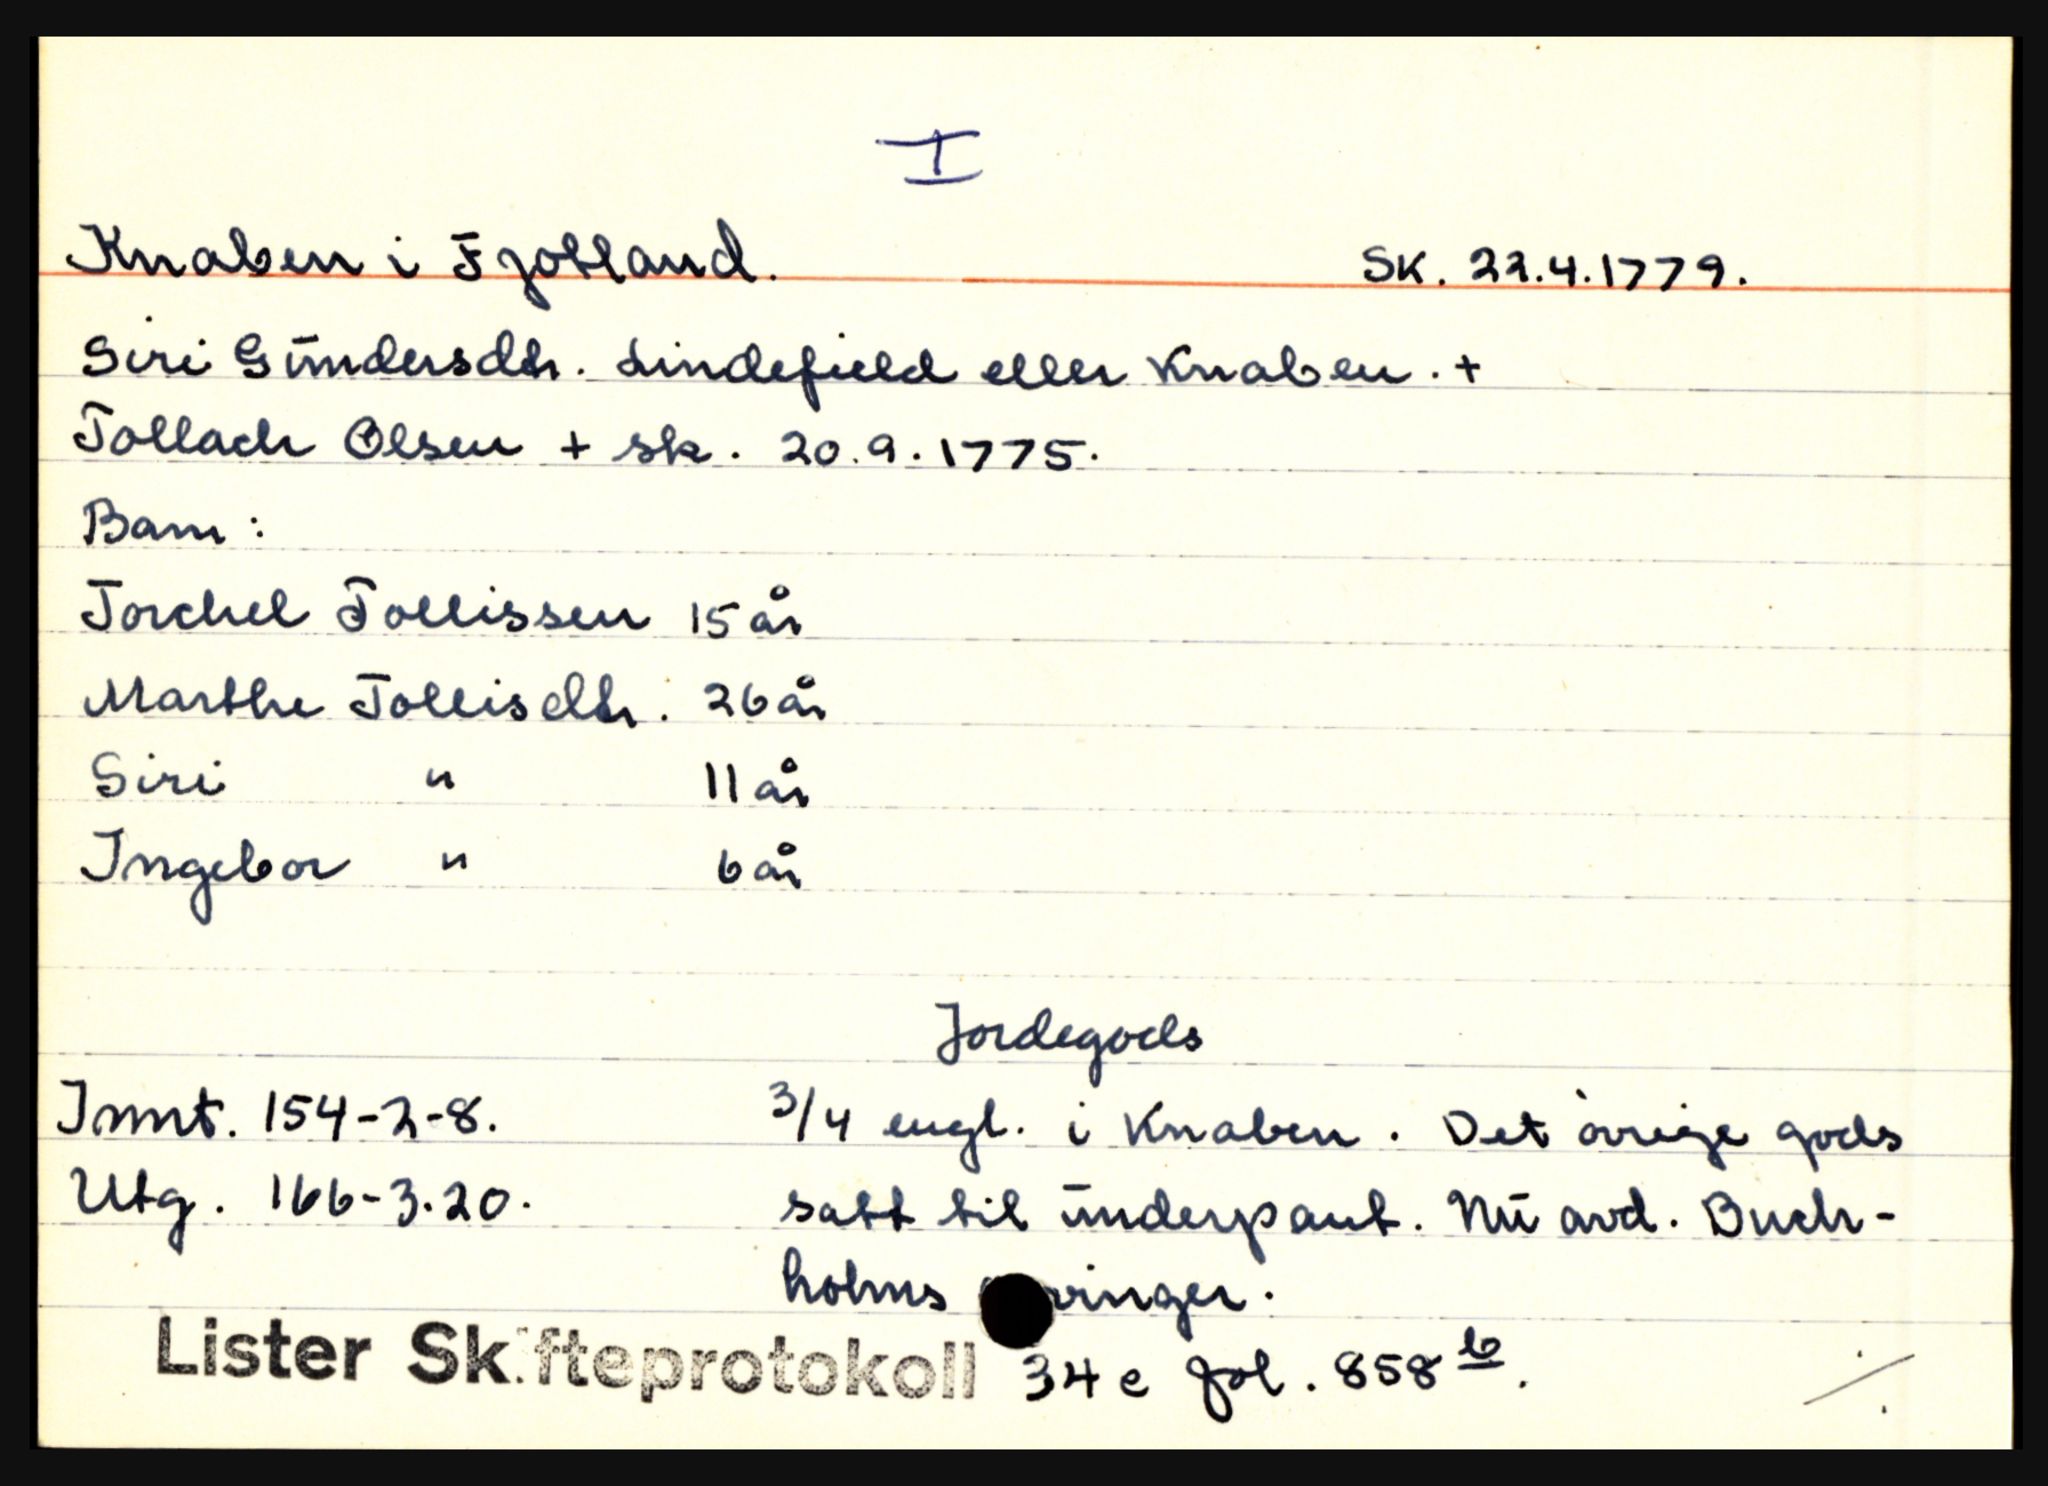 I
Knaben i Fjotland. Sk. 22.4.1779.
Siri Gundersdtr. Lindefield eller Knaben. +
Tollach Olsen + sk. 20.9.1775.
Barn:
Torchel Tollissen 15 år
Marthe Tollisdtr. 26 år
Siri " 11 år
Ingebor " 6 år
Jordegods
Innt. 154-2-8. 3/4 engl. i Knaben. Det øvrige gods
Utg. 166-3.20. satt til underpant. Nu avd. Buch-
holms
Lister Skifteprotokoll 34 e fol. 858 b.